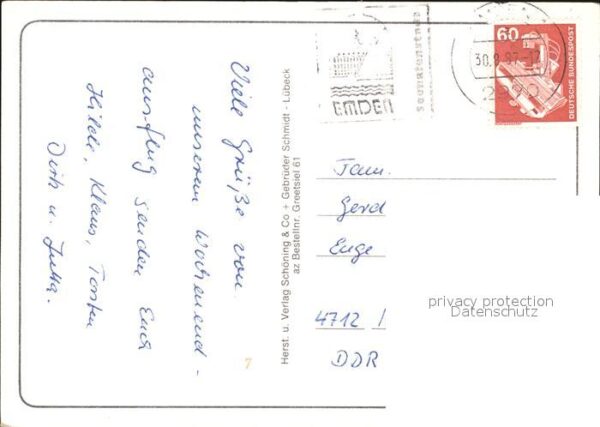 Viele Grüße von
unserem Wochenend-
ausflug senden Euch
Hilde, Klaus, Torsten
Dirk u. Jutta.
7
Herst. u. Verlag Schöning & Co + Gebrüder Schmidt - Lübeck
az Bestellnr. Greetsiel 61
EMDEN
30.8.
2970
60
DEUTSCHE BUNDESPOST
Fam.
Gerd
Enge
4712 /
DDR
privacy protection
Datenschutz